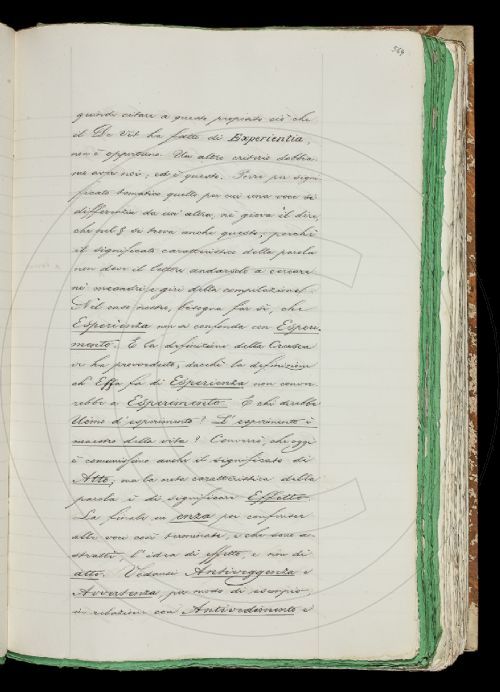 564
quindi citare a questo proposito ciò che
il De Vit ha fatto di Experientia,
non è opportuno. Un altro criterio dobbia-
mo aver noi; ed è questo. Porre per signi-
ficato tematico quello per cui una voce si
differenzia da un'altra, nè giova il dire,
che nel § si trova anche questo; perchè
il significato caratteristico della parola
non deve il lettore andarselo a cercare
ne' meandri e giri della compilazione.
Nel caso nostro, bisogna far sì, che
Esperienza non si confonda con Esperi-
mento. E la definizione della Crusca
vi ha provveduto, dacchè la definizione
ch'Essa fa di Esperienza non conver-
rebbe a Esperimento. E chi direbbe
Uomo d'esperimento? L'esperimento è
maestro della vita? Converrò, che oggi
è comunissimo anche il significato di
Atto, ma la nota caratteristica della
parola è di significare Effetto.
La finale in enza per conferire
alle voci così terminate, e che sono a-
stratti, l'idea di effetto, e non di
atto. Vedansi Antiveggenza e
Avvertenza, per modo di esempio,
in relazione con Antivedimento e